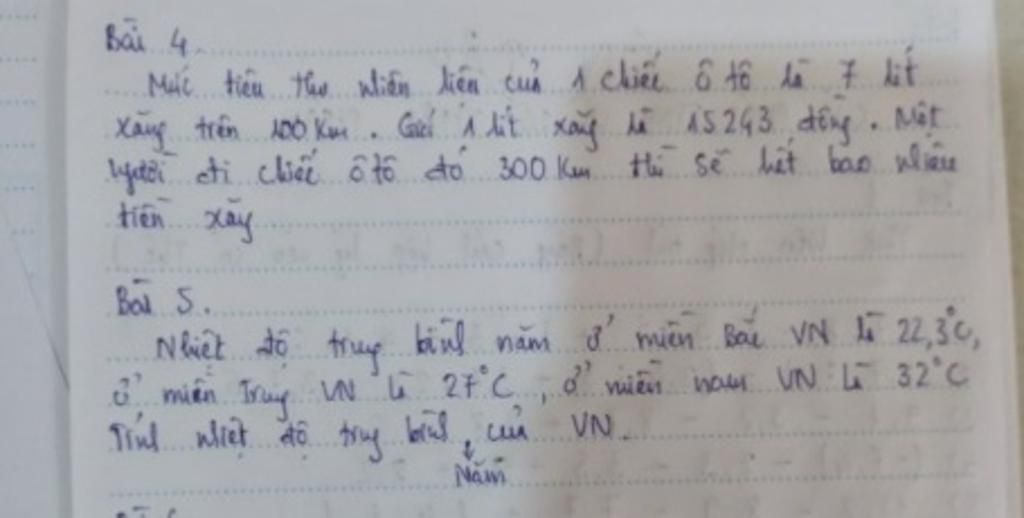 Bài 4.
Mức tiêu thụ nhiên liên của 1 chiếc ô tô là 7 lít
xăng trên 100 Km. Giá 1 lít xăng là 15243 đồng. Một
người đi chiếc ô tô đó 300 Km thì sẽ hết bao nhiêu
tiền xăng
Bài 5.
Nhiệt độ trung bình năm ở miền Bắc VN là 22,3°C,
ở miền Trung VN là 27°C, ở miền nam VN là 32°C
Tính nhiệt độ trung bình của VN.
Năm